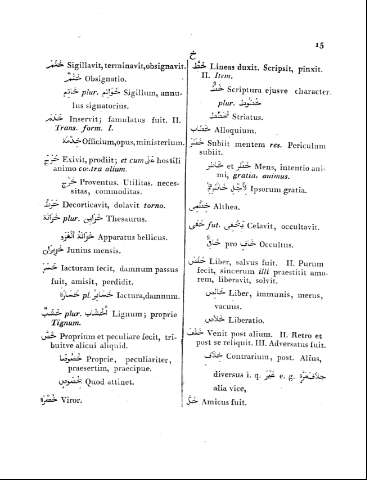 15
خ
خَتَمَ Sigillavit, terminavit, obsignavit.
خَتْمٌ Obsignatio.
خَاتِم plur. خَوَاتِم Sigillum, annu-
lus signatorius.
خَدَمَ Inservit; famulatus fuit. II.
Trans. form. I.
خِدْمَة Officium, opus, ministerium.
خَرَجَ Exivit, prodiit; et cum عَلَى hostili
animo contra alium.
خَرْج Proventus. Utilitas. neces-
sitas, commoditas.
خَرَطَ Decorticavit, dolavit torno.
خَزَانَة plur. خَزَاين Thesaurus.
خَزَانَة الغَزْو Apparatus bellicus.
حزيران Junius mensis.
خَسِرَ Iacturam fecit, damnum passus
fuit, amisit, perdidit.
خَسَارَة pl خَسَاير Iactura, damnum.
خَشَبٌ plur. أَخْشَاب Lignum; proprie
Tignum.
خَصَّ Proprium et peculiare fecit, tri-
buitve alicui aliquid.
خُصُوصًا Proprie, peculiariter,
praesertim, praecipue.
بِخُصُوص Quod attinet.
خُضْرَة Viror.
خَطَّ Lineas duxit. Scripsit, pinxit.
II. Item.
خَطٌّ Scriptura ejusve character
plur. خُطُوط
مُخَطَّط Striatus.
خِطَاب Alloquium.
خَطَرَ Subiit mentem res. Periculum
subiit.
خَاطِر et خَطَر Mens, intentio ani-
mi, gratia, animus.
لِأَجْلِ خَاطِرِهُمْ Ipsorum gratia.
خِطْمِى Althea.
خَفَى fut. يَخْفَى Celavit, occultavit.
خَافٍ pro خَافِى Occultus.
خَلَصَ Liber, salvus fuit. II. Purum
fecit, sincerum illi praestitit amo-
rem, liberavit, solvit.
خَالِص Liber, immunis, merus,
vacuus.
خَلَاص Liberatio.
خَلَفَ Venit post alium. II. Retro et
post se reliquit. III. Adversatus fuit.
خِلَاف Contrarium, post. Alius,
diversus i. q. غَيْر e. g.
alia vice,
خَلَّ Amicus fuit.